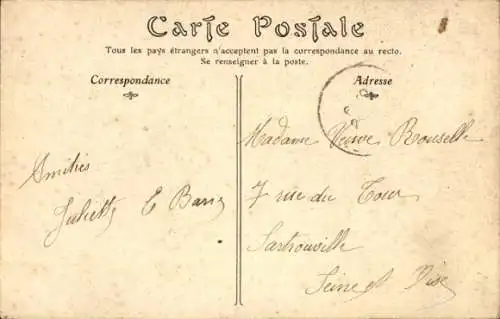 Carte Postale
Tous les pays étrangers n'acceptent pas la correspondance au recto.
Se renseigner à la poste.
Correspondance
Adresse
Amitiés
Juliette
Madame Veuve Rouselle
7 rue du Tour
Sartrouville
Seine et Oise